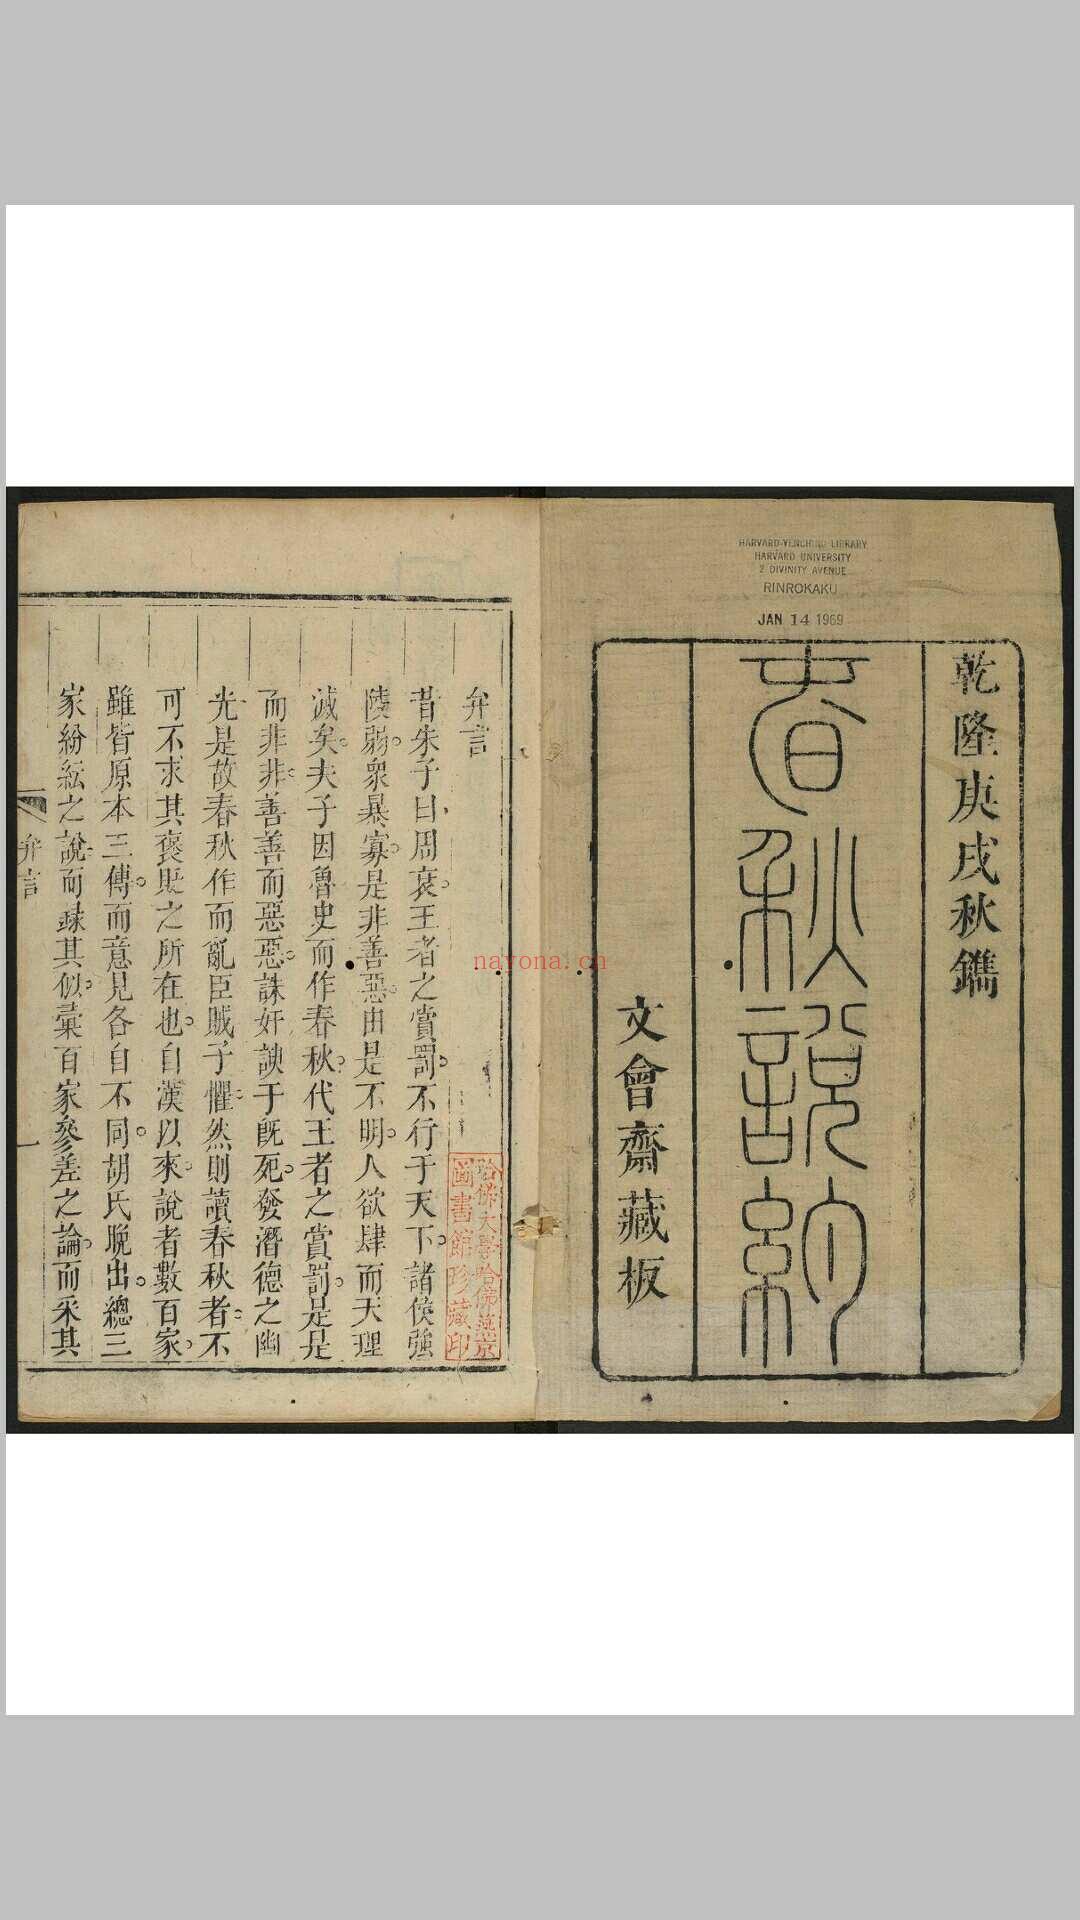 HARVARD-YENCHING LIBRARY
HARVARD UNIVERSITY
2 DIVINITY AVENUE
RINROKAKU
JAN 14 1969
乾隆庚戌秋鐫
春秋說約
文會齋藏板
弁言
昔朱子曰周衰王者之賞罰不行于天下諸侯強
陵弱衆暴寡是非善惡由是不明人欲肆而天理
滅矣夫子因魯史而作春秋代王者之賞罰是是
而非非善善而惡惡誅奸諛于既死發潛德之幽
光是故春秋作而亂臣賊子懼然則讀春秋者不
可不求其褒貶之所在也自漢以來說者數百家
雖皆原本三傳而意見各自不同胡氏晚出總三
家紛紜之說而録其似彙百家參差之論而采其
弁言
一
哈佛大學哈佛燕京
圖書館珍藏印
nayona.cn